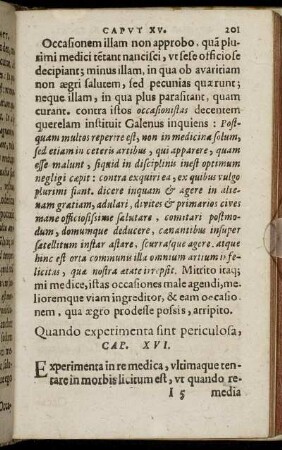 CAPVT XV. 201
Occasionem illam non approbo, quã plu-
rimi medici tētant nancisci, vt sese officiose
decipiant; minus illam, in qua ob avaritiam
non ægri salutem, sed pecunias quærunt;
neque illam, in qua plus parasitant, quam
curant. contra istos occasionistas decentem
querelam instituit Galenus inquiens: Post-
quam multos reperire est, non in medicina solum,
sed etiam in ceteris artibus, qui apparere, quam
esse malunt, siquid in disciplinis inest optimum
negligi cæpit: contra exquiri ea, ex quibus vulgo
plurimi fiant. dicere inquam & agere in alie-
uam gratiam, adulari, divites & primarios cives
mane officiosissime salutare, comitari postmo-
dum, domumque deducere, cænantibus insuper
satellitum instar astare, scurrasque agere. atque
hinc est orta communis illa omnium artium in fe-
licitas, qua nostra ætate irrepsit. Mitrito itaq;
mi medice, istas occasiones male agendi, me-
lioremque viam ingreditor, & eam occasio-
nem, qua ægro prodesse possis, arripito.
Quando experimenta sint periculosa,
CAP. XVI.
Experimenta in re medica, vltimaque ten-
tare in morbis licitum est, vt quando re-
I 5 media